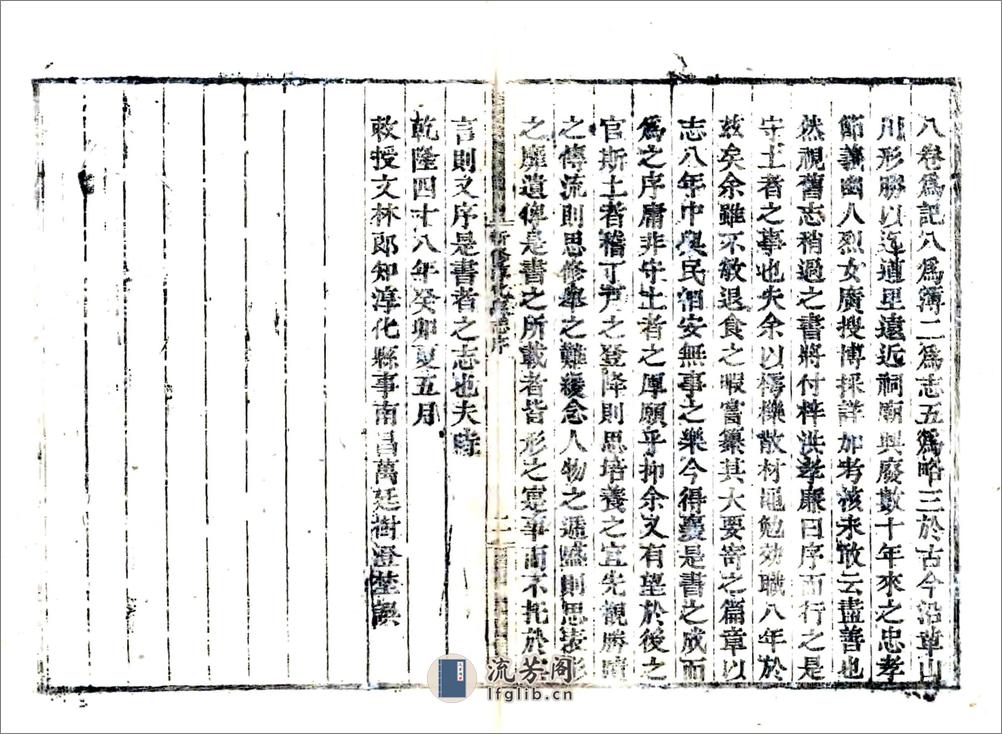 八卷爲記八爲簿二爲志五爲略三於古今沿革山
川形勝以迄道里遠近祠廟興廢數十年來之忠孝
節義幽人烈女廣搜博採詳加考核未敢云盡善也
然視舊志稍過之書將付梓洪孝廉曰序而行之是
守土者之事也夫余以樗櫟散材黽勉効職八年於
茲矣余雖不敏退食之暇嘗纂其大要寄之篇章以
志八年中與民相安無事之樂今得襄是書之成而
爲之序庸非守土者之厚願乎抑余又有望於後之
官斯土者稽丁戸之登降則思培養之宜先觀勝蹟
之傳流則思修舉之難緩念人物之遞盛則思
之靡遺俾是書之所載者皆形之寔事而不托於
言則又序是書者之志也夫時
乾隆四十八年癸卯夏五月
敕授文林郎知淳化縣事南昌萬廷樹澄埜譔
新修淳化縣志序
二
流芳阁
lfglib.cn